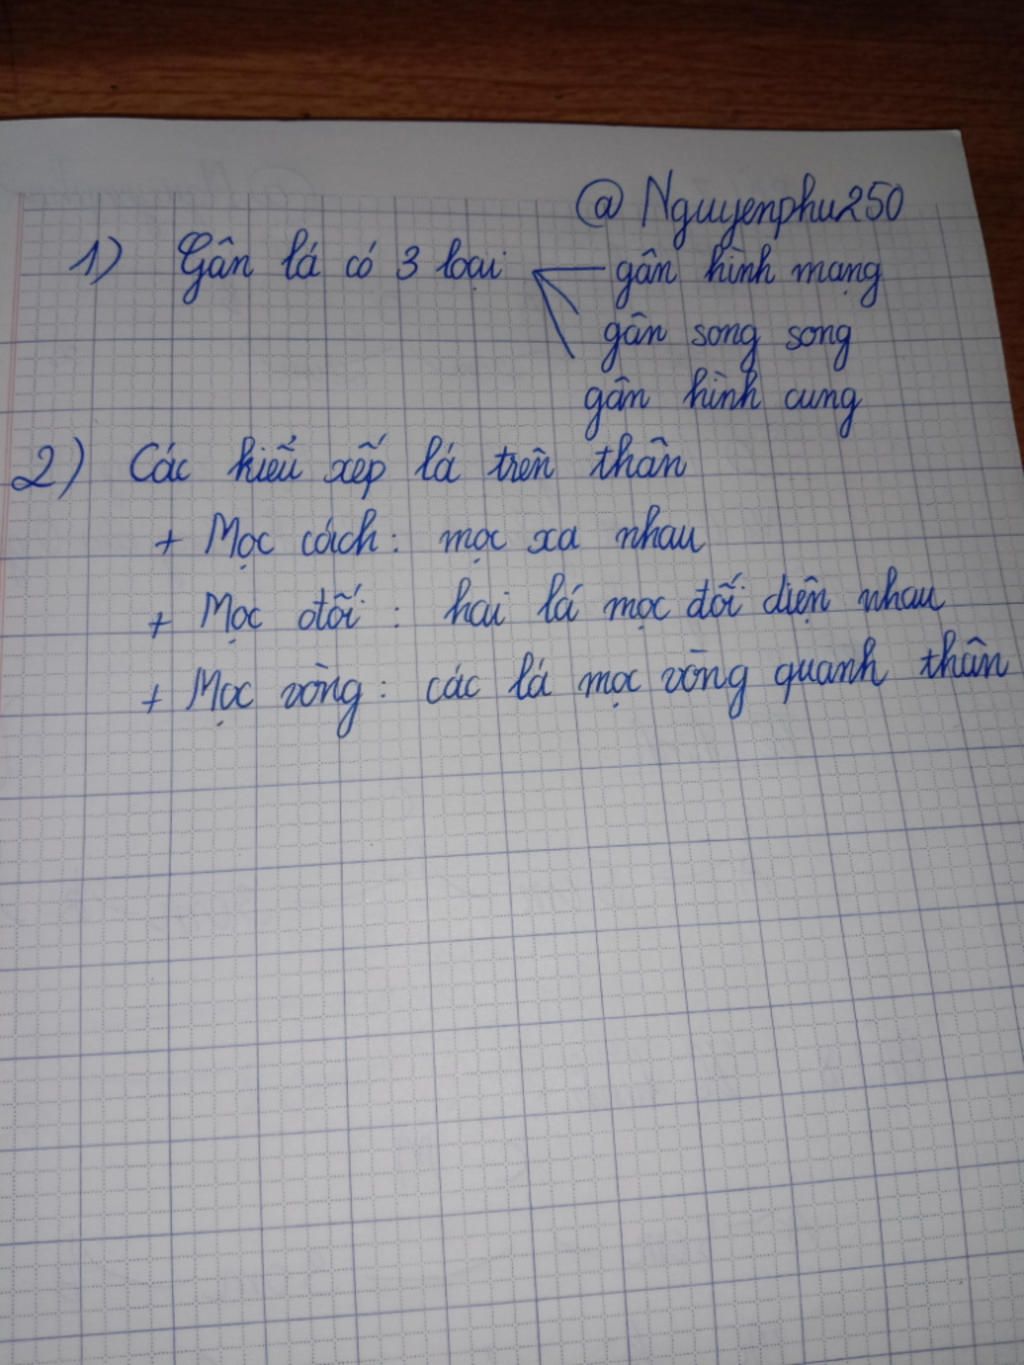 @ Nguyenphu250
1) Gân lá có 3 loại gân hình mạng
gân song song
gân hình cung
2) Các kiểu xếp lá trên thân
+ Mọc cách: mọc xa nhau
+ Mọc đối: hai lá mọc đối diện nhau
+ Mọc vòng: các lá mọc vòng quanh thân